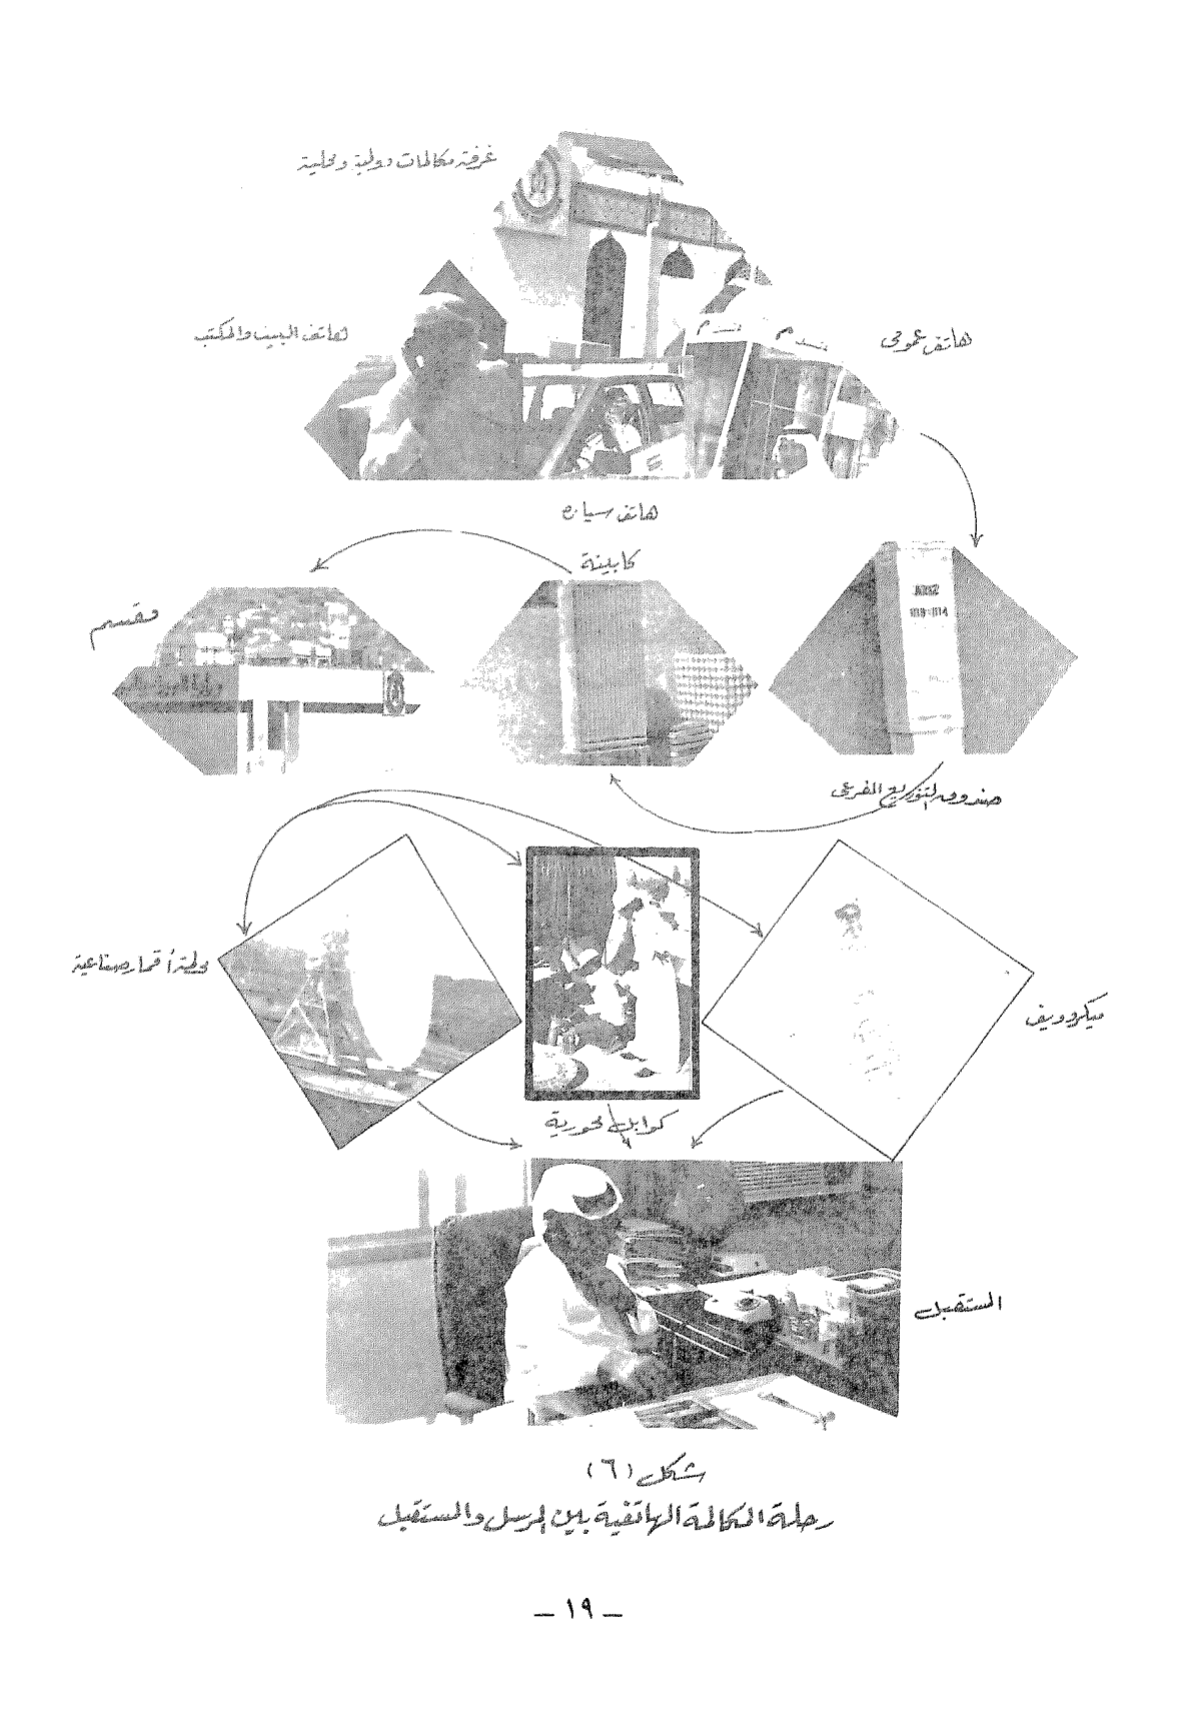 غرفة مكالمات دولية ومحلية
هاتف البيت والمكتب
هاتف عمومي
هاتف سيارة
كابينة
مقسم
صندوق التوزيع الفرعي
محطة أقمار صناعية
ميكروويف
كوابل محورية
المستقبل
شكل (٦)
رحلة المكالمة الهاتفية بين المرسل والمستقبل
– ١٩ –